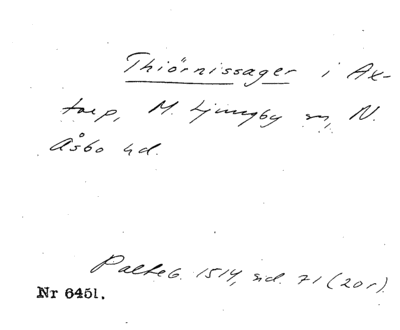 Thiörnissager i Ax-
torp, M. Ljungby sn, N.
Åsbo hd.
Palteb. 1514, sid. 71 (20r).
Nr 6451.